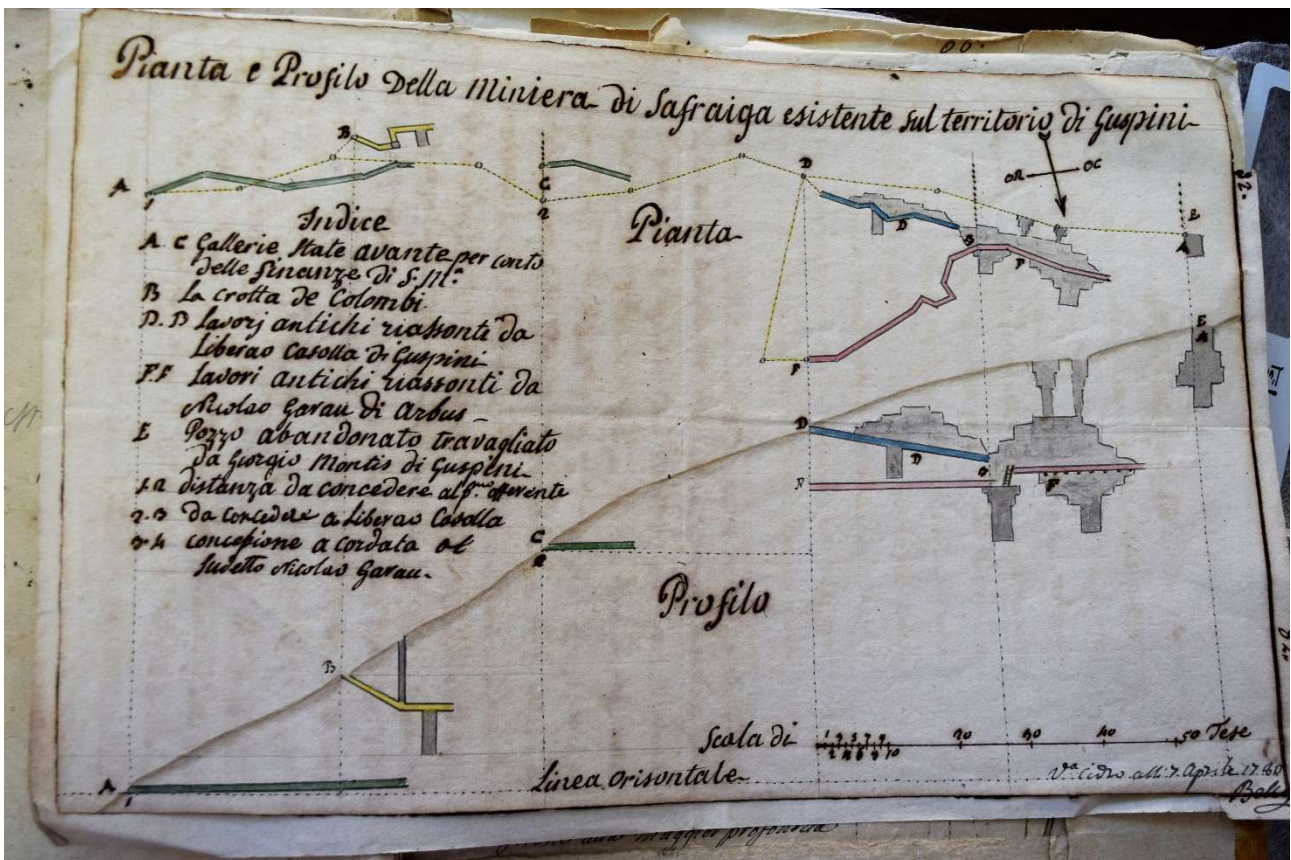 Pianta e Profilo Della Miniera di Safraiga esistente sul territorio di Guspini
B
A
1
C
2
D
OR
OC
E
Indice
Pianta
A. C Gallerie state avante per conto
delle finanze di S. M.ª
B La crotta de Colombi
D. D Lavorj antichi riassonti da
Liberao Casolla di Guspini
F. F Lavori antichi riassonti da
Nicolao Garau di Arbus
E Pozzo abandonato travagliato
da Giorgio Montis di Guspini
distanza da concedere al offerente
2.3 da concedere a Liberao Casolla
3.4 concessione acordata
Sudetto Nicolao Garau.
D
F
F
E
4
D
D
F
F
C
Profilo
B
Scala di
1 2 3 4 5 6 7 8 9 10 20 30 40 50 Tese
A
1
Linea orisontale
V.ª Cidro alli 7. Aprile